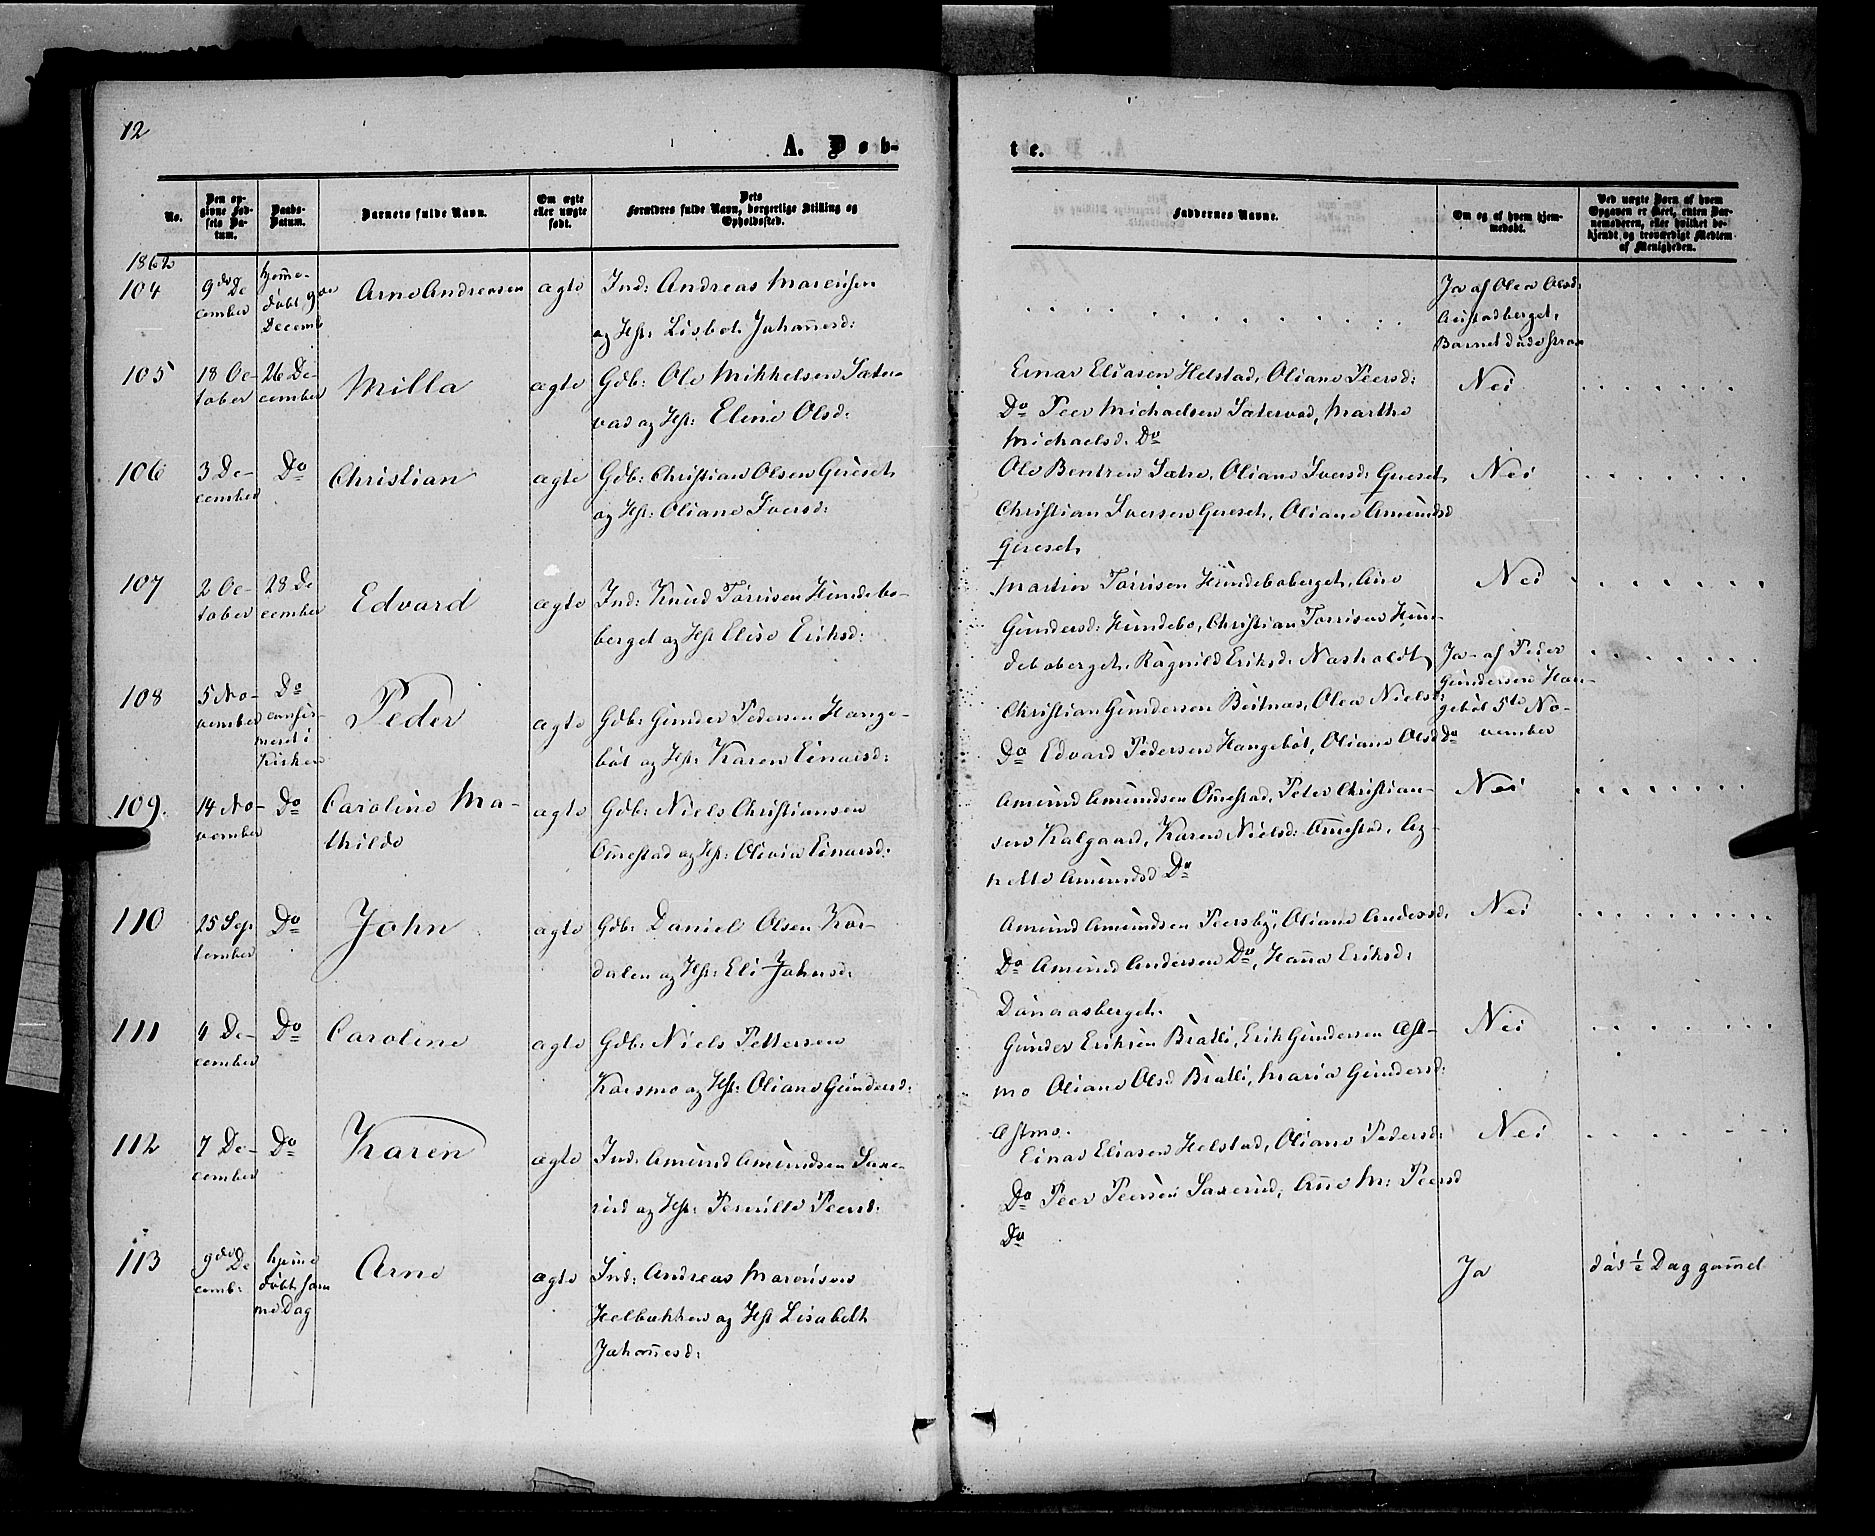 12
A. Døb-
te.
No.
Den op-
givne Fød-
sels Da-
tum.
Daabs-
Datum.
Barnets fulde Navn.
Om ægte
eller uægte
født.
Dets
Forældres fulde Navn, borgerlige Stilling og
Opholdssted.
Faddernes Navne.
Om og af hvem hjem-
medøbt.
Ved uægte Børn af hvem
Opgaven er skeet, enten Bar-
nemoderen, eller hvilket be-
kjendt og troværdigt Medlem
af Menigheden.
1862
104
9de De
cember
hjemme-
døbt 9de
Decemb
Arne Andreasen
ægte
Ind: Andreas
og Hst: Lisbet Johannesd:
Ja af Olea Olsd:
Barnet døde strax
105
18 Oc-
tober
26 De-
cember
Milla
ægte
Gdb: Ole Mikkelsen Sæter-
vad og Hst: Eline Olsd:
Einar Eliasen Helstad, Oliane Peersd:
Do Peer Michaelsen Sætervad, Marthe
Michaelsd. Do
Nei
106
3 De-
cember
Do
Christian
ægte
Gdb: Christian Olsen Gireset
og Hst: Oliane Iversd:
Ole Bentsen Sætre, Oliane Iversd: Gireset,
Christian Iversen Gireset, Oliane Amundsd
Gireset
Nei
107
2 Oc-
tober
28 De
cember
Edvard
ægte
Ind: Knud Torrisen Hundebo-
berget og Hst Elise Eriksd:
Martin Torrisen Hundeboberget, Ane
Gundersd: Hundebo, Christian Torrisen Hun-
deboberget, Ragnild Eriksd. Næsholdt
Nei
108
5 No-
vember
Do
confir-
meret i
Kirken
Peder
ægte
Gdb: Gunder Pedersen Hange-
böl og Hst: Karen Einarsd:
Christian Gundersen Beitnæs, Olea Nielsd:
Do Edvard Pedersen Hangeböl, Oliane Olsd Do
Ja - af Peder
Gundersen Han-
geböl 5te No-
vember
109.
14 No-
vember
Do
Caroline Ma-
thilde
ægte
Gdb: Niels Christiansen
Omestad og Hst: Olivia Einarsd:
Amund Amundsen Omestad, Peter Christian-
sen Kalgaard, Karen Nielsd: Omestad, Ag-
nette Amundsd Do
Nei
110
25 Sep
tember
Do
John
ægte
Gdb: Daniel Olsen Kor-
dalen og Hst: Eli Johnsd:
Amund Amundsen Peersby, Oliane Andersd.
Do Amund Andersen Do, Hanna Eriksd:
Danaasberget.
Nei
111
4 De-
cember
Do
Caroline
ægte
Gdb: Niels Pettersen
Karsmo og Hst: Oliane Gundersd:
Gunder Eriksen Bratli, Erik Gundersen Ast-
mo Oliane Olsd Bratli, Maria Gundersd:
Astmo.
Nei
112
7 De-
cember
Do
Karen
ægte
Ind: Amund Amundsen Saxe-
rud og Hst: Pernille Peersd:
Einar Eliasen Helstad, Oliane Pedersd:
Do Peer Peersen Saxerud, Ane M: Peersd
Do
Nei
113
9de De
cemb:
hjeme
døbt sam
me Dag
Arne
ægte
Ind: Andreas
Helbækken og Hst Lisabeth
Johannesd:
Ja
død ½ Dag gammel